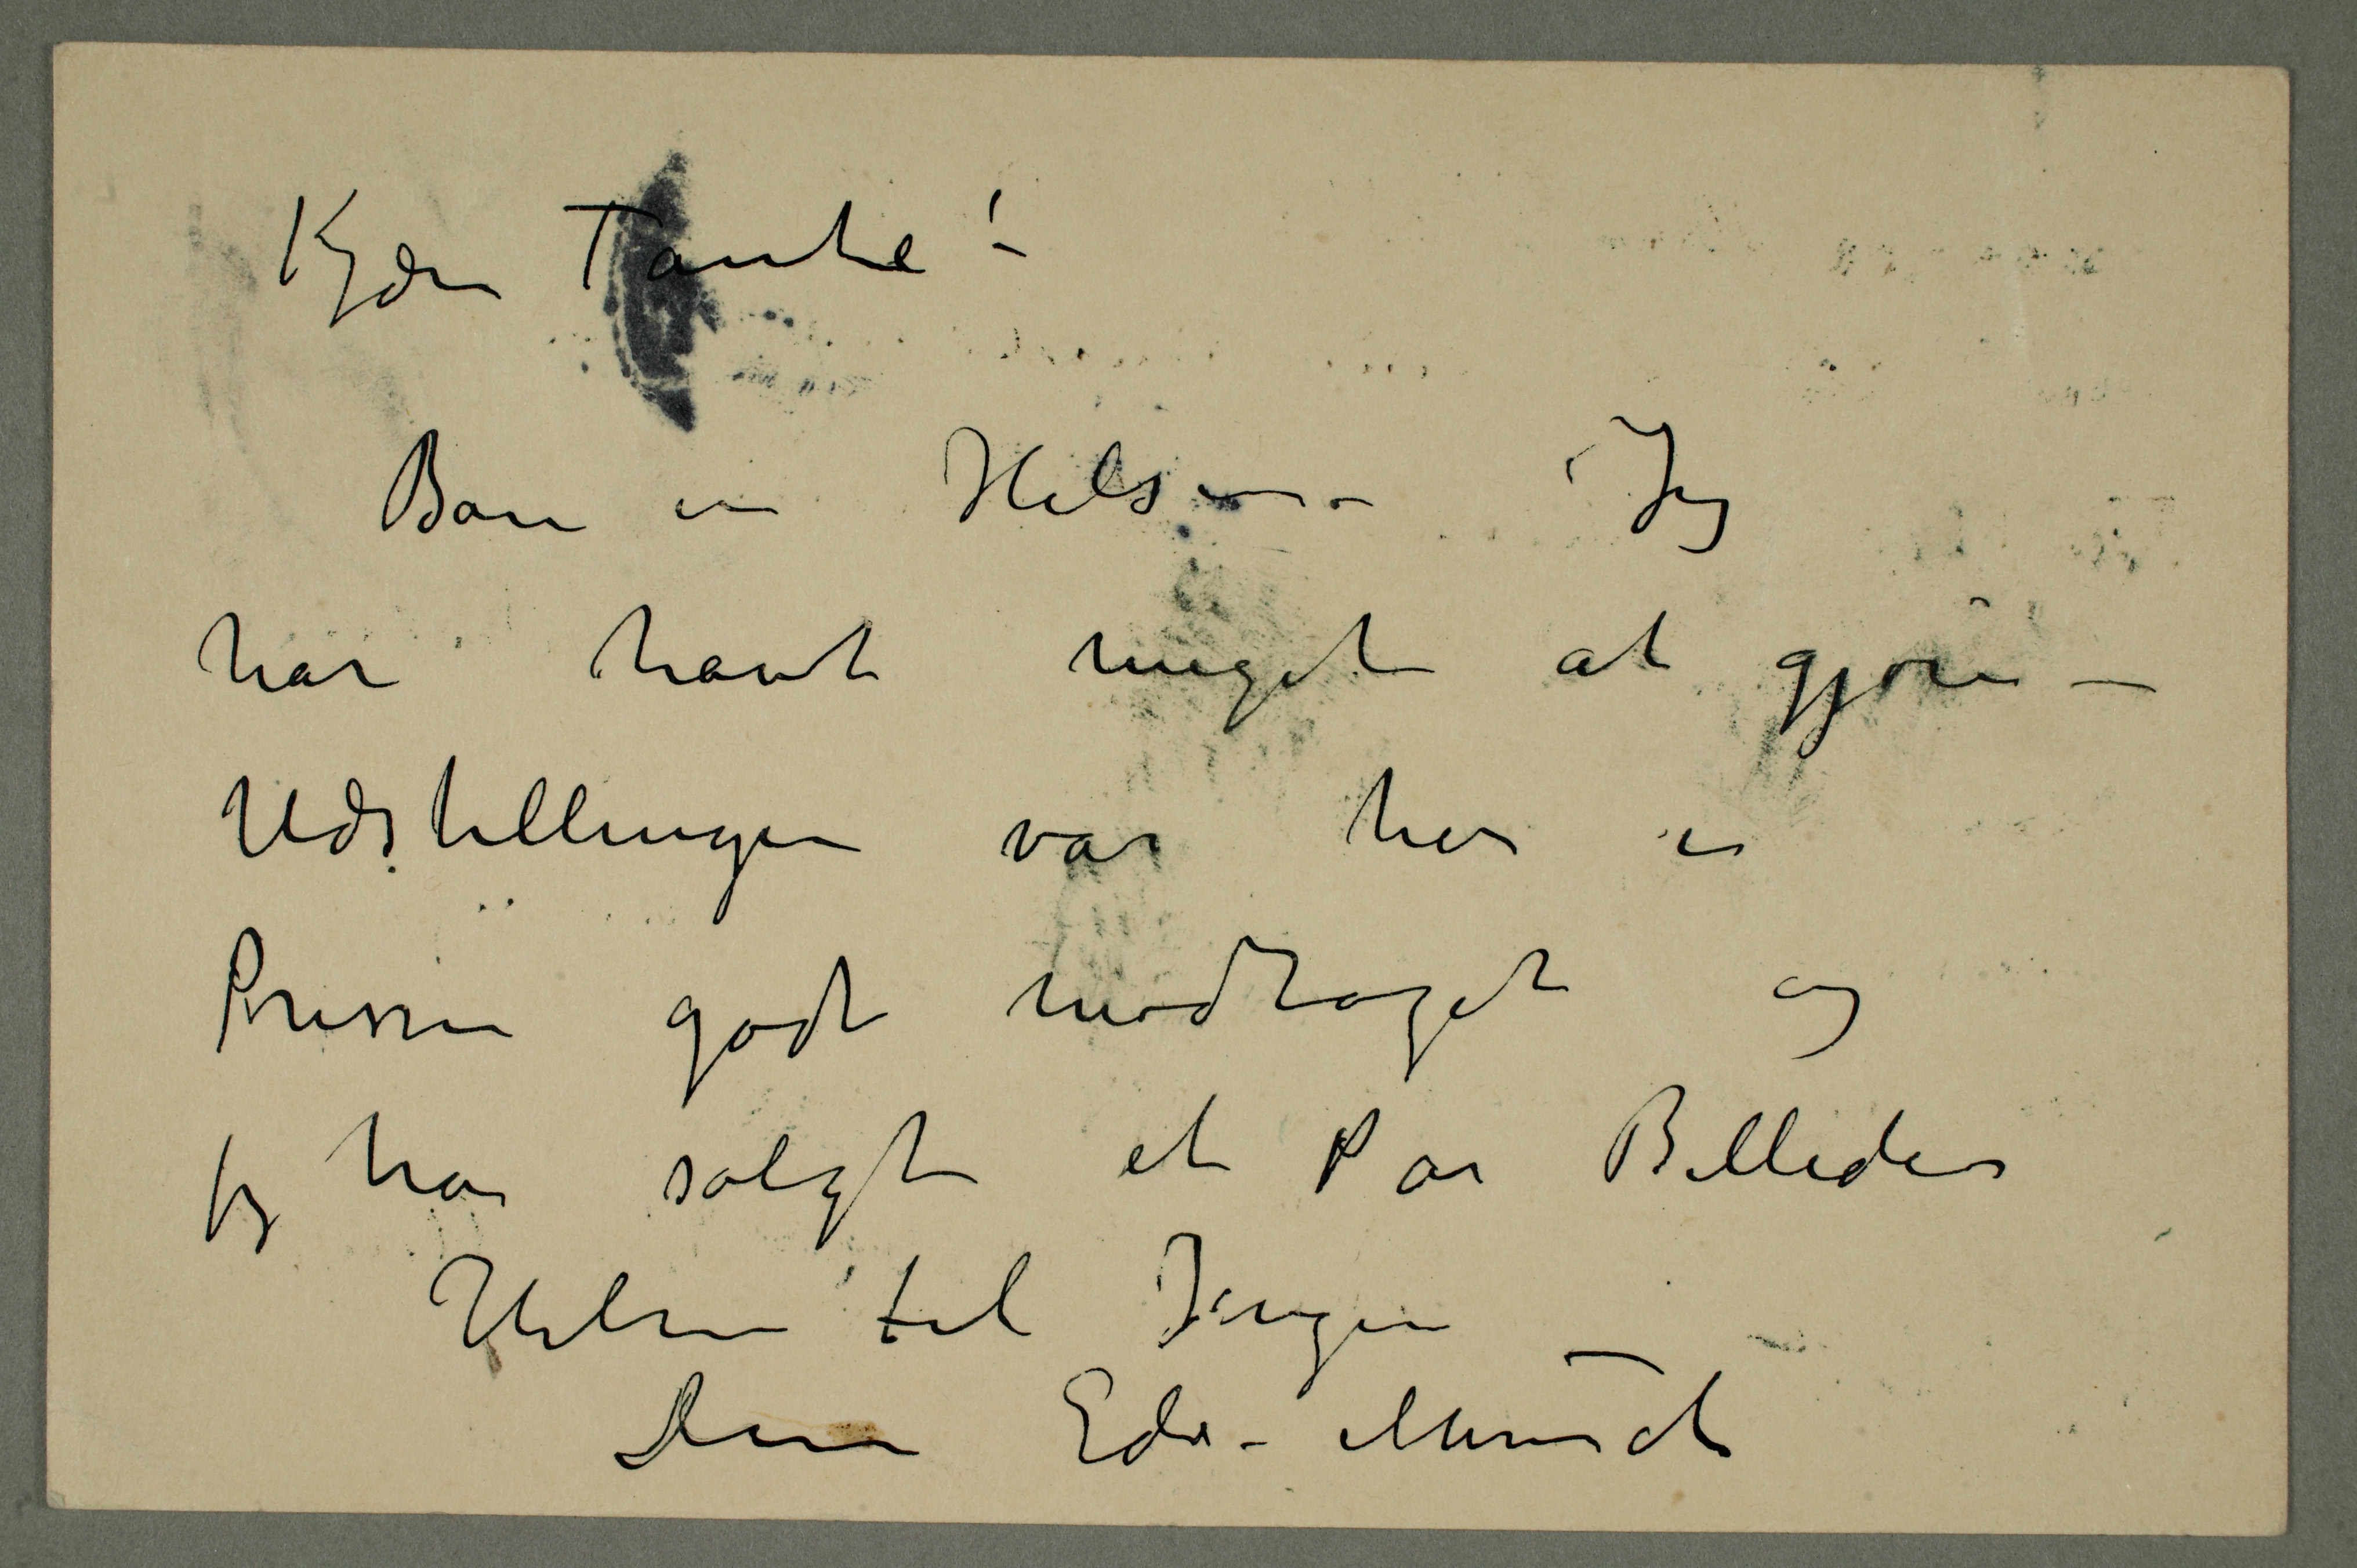 Kjære Tante!
Bare en Hilsen – Jeg
har havt meget at gjøre –
Udstillingen var her i
Pressen godt modtaget og
jeg har solgt et Par Billeder
Hilsen til Inger –
Din Edv. Munch